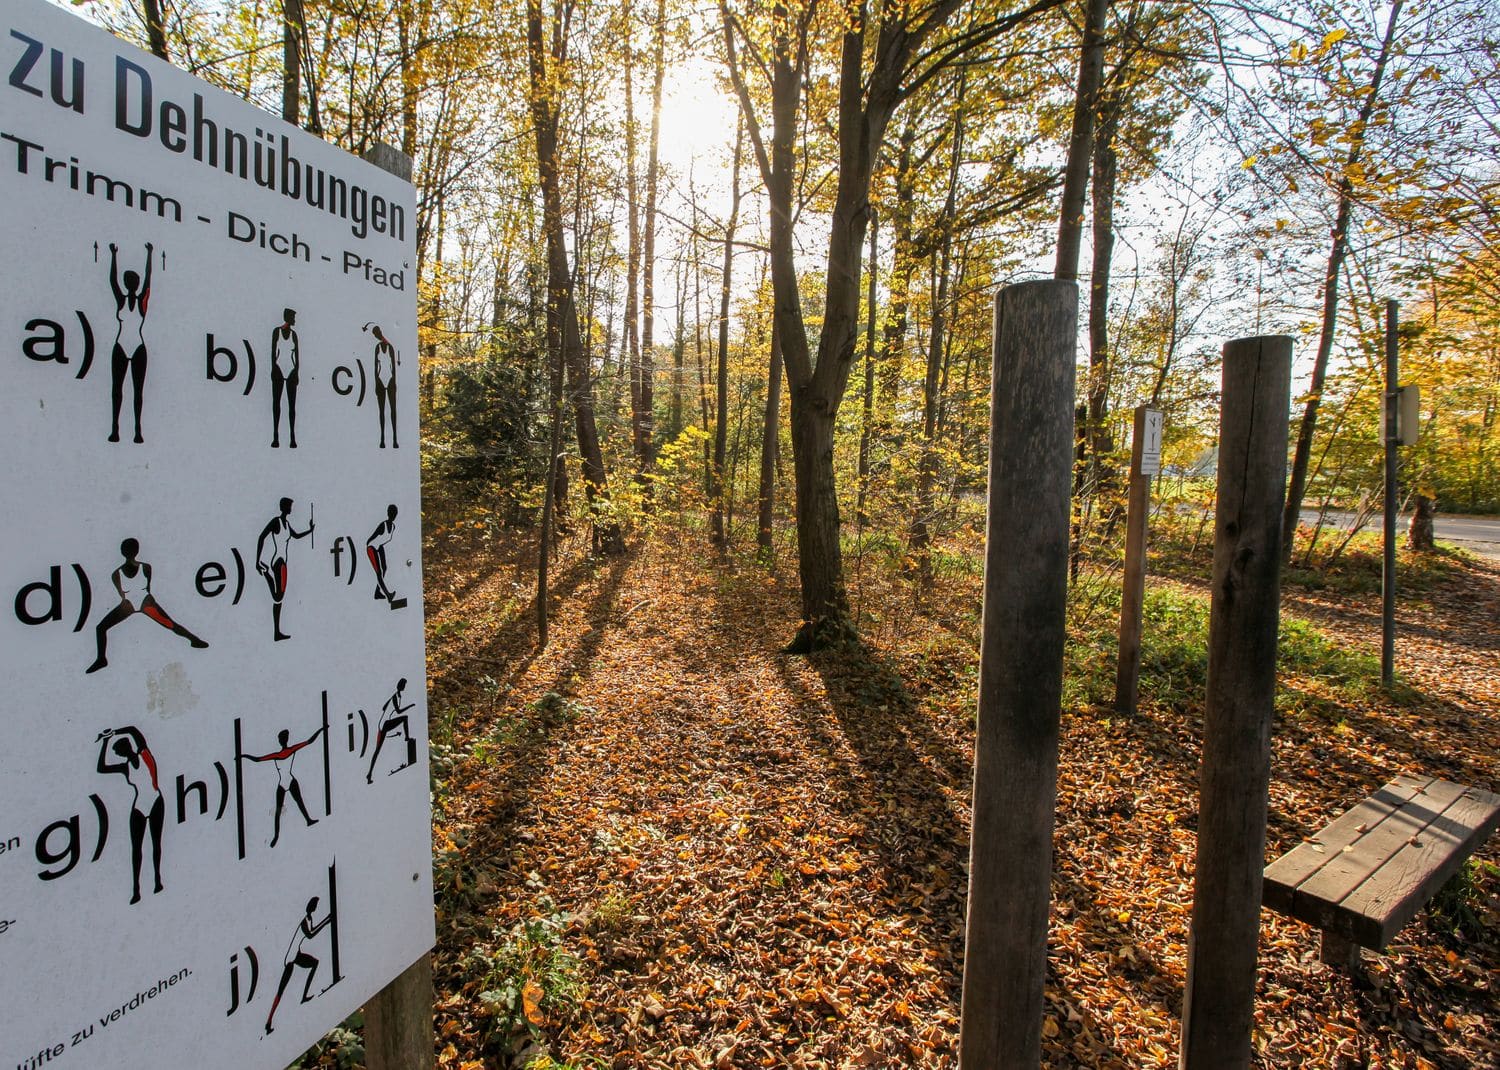 zu Dehnübungen
Trimm - Dich - Pfad
a)
b)
c)
d)
e)
f)
g)
h)
i)
j)
zu verdrehen.